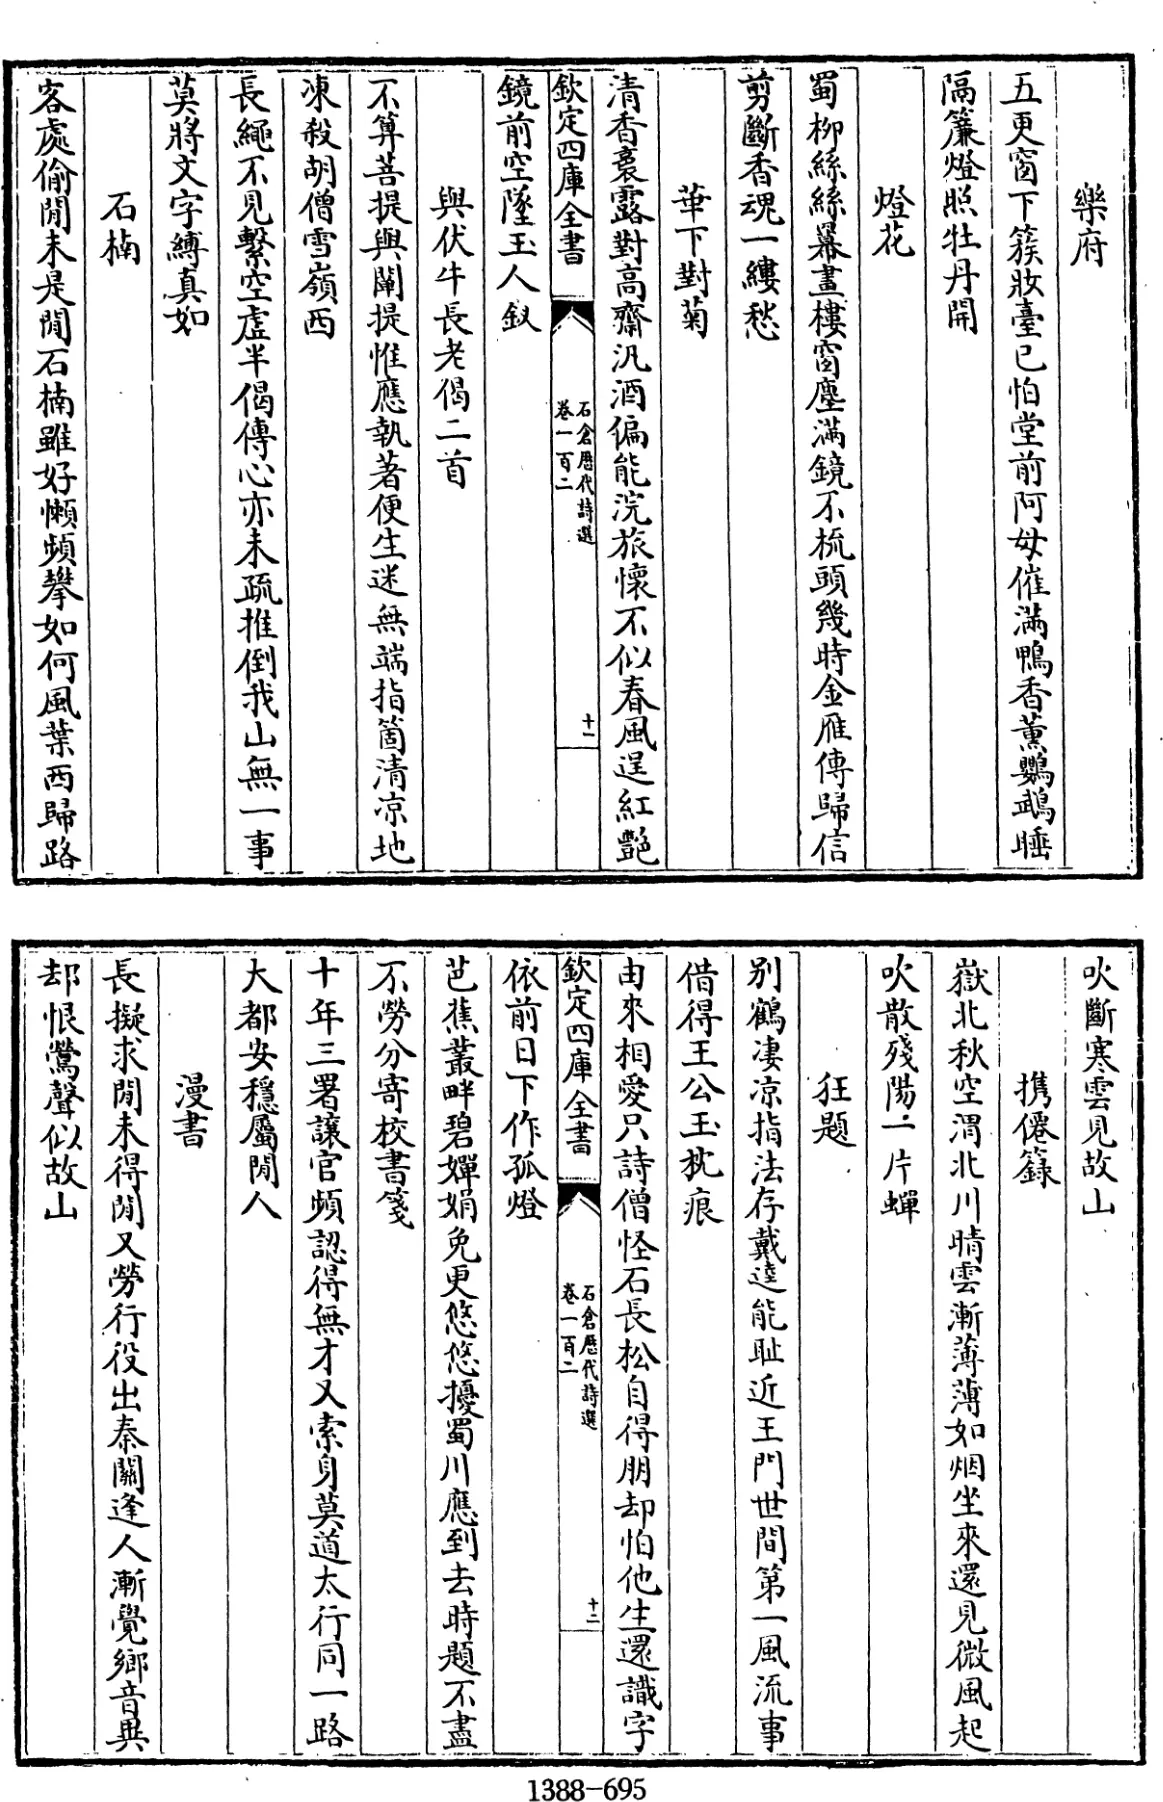 樂府
五更窗下簇妝臺已怕堂前阿母催滿鴨香薰鸚鵡睡
隔簾燈照牡丹開
燈花
蜀柳絲絲羃畫樓窗塵滿鏡不梳頭幾時金雁傳歸信
剪斷香魂一縷愁
華下對菊
清香裛露對高齋汎酒偏能浣旅懷不似春風逞紅艷
欽定四庫全書
石倉歷代詩選
卷一百二
十一
鏡前空墜玉人釵
與伏牛長老偈二首
不算菩提與闡提惟應執著便生迷無端指箇清凉地
凍殺胡僧雪嶺西
長繩不見繫空虛半偈傳心亦未疏推倒我山無一事
莫將文字縛真如
石楠
客處偷閒未是閒石楠雖好懶頻攀如何風葉西歸路
吹斷寒雲見故山
携僊籙
嶽北秋空渭北川晴雲漸薄薄如烟坐來還見微風起
吹散殘陽一片蟬
狂題
別鶴凄凉指法存戴逵能耻近王門世間第一風流事
借得王公玉枕痕
由來相愛只詩僧怪石長松自得朋却怕他生還識字
欽定四庫全書
石倉歷代詩選
卷一百二
十二
依前日下作孤燈
芭蕉叢畔碧嬋娟免更悠悠擾蜀川應到去時題不盡
不勞分寄校書箋
十年三署讓官頻認得無才又索身莫道太行同一路
大都安穩屬閒人
漫書
長擬求閒未得閒又勞行役出秦關逢人漸覺鄉音異
却恨鶯聲似故山
1388-695